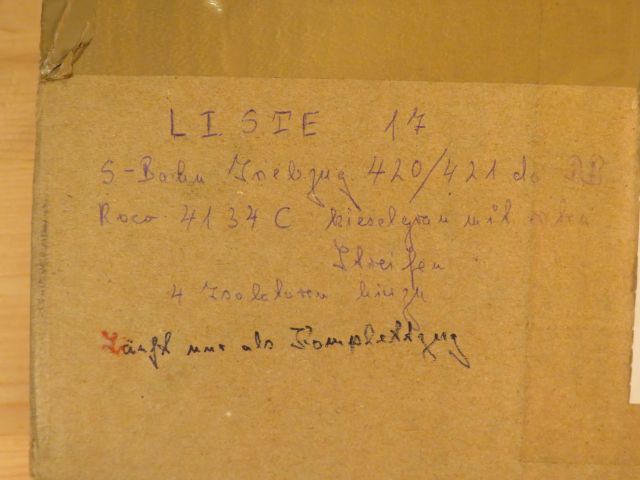 LISTE 17
S-Bahn Triebzug 420/421 der DB
Roco 4134 C kieselgrau mit
Streifen
4 Isolatoren hinzu
Läuft nur als Komplettzug